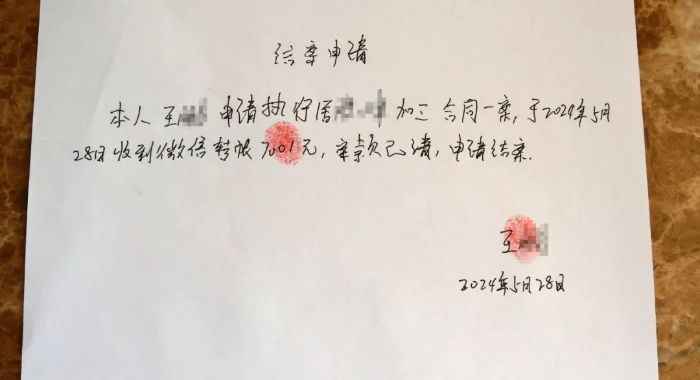 结案申请
本人王 申请执行居 加工合同一案，于2024年5月
28日收到微信转帐7001元，案款已清，申请结案.
王
2024年5月28日